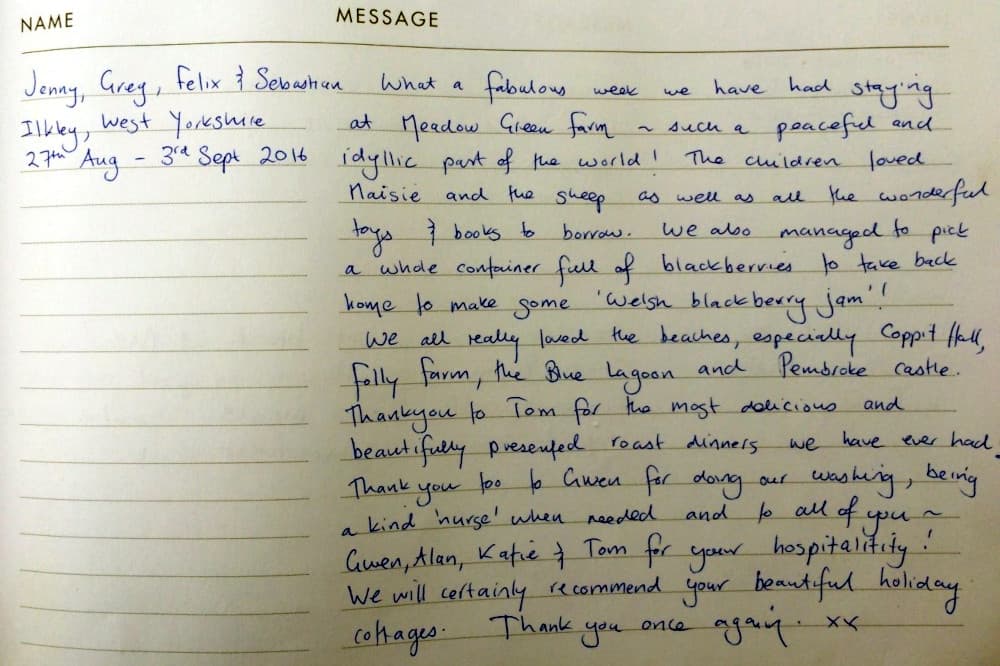 NAME MESSAGE
Jenny, Greg, Felix & Sebastian What a fabulous week we have had staying
Ilkley, West Yorkshire at Meadow Green Farm ~ such a peaceful and
27th Aug - 3rd Sept 2016 idyllic part of the world! The children loved
Maisie and the sheep as well as all the wonderful
toys & books to borrow. We also managed to pick
a whole container full of blackberries to take back
home to make some 'Welsh blackberry jam'!
We all really loved the beaches, especially Coppit Hall,
Folly Farm, the Blue Lagoon and Pembroke Castle.
Thankyou to Tom for the most delicious and
beautifully presented roast dinners we have ever had.
Thank you too to Gwen for doing our washing, being
a kind 'nurse' when needed and to all of you ~
Gwen, Alan, Katie & Tom for your hospitalitity!
We will certainly recommend your beautiful holiday
cottages. Thank you once again. xx